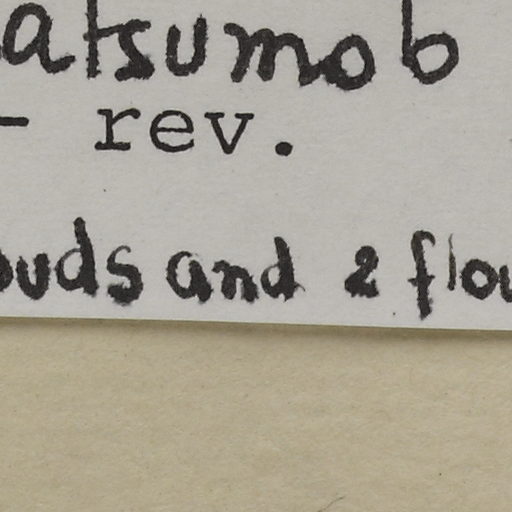 atsumob
- rev.
buds and 2 flou